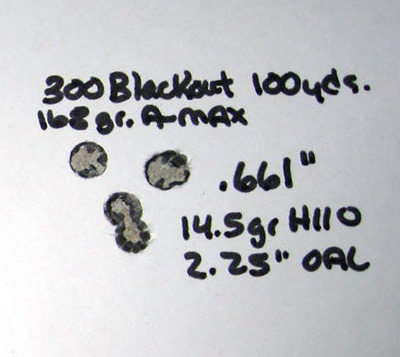 300 Blackout 100yds.
168 gr. A-MAX
.661"
14.5gr H110
2.25" OAL